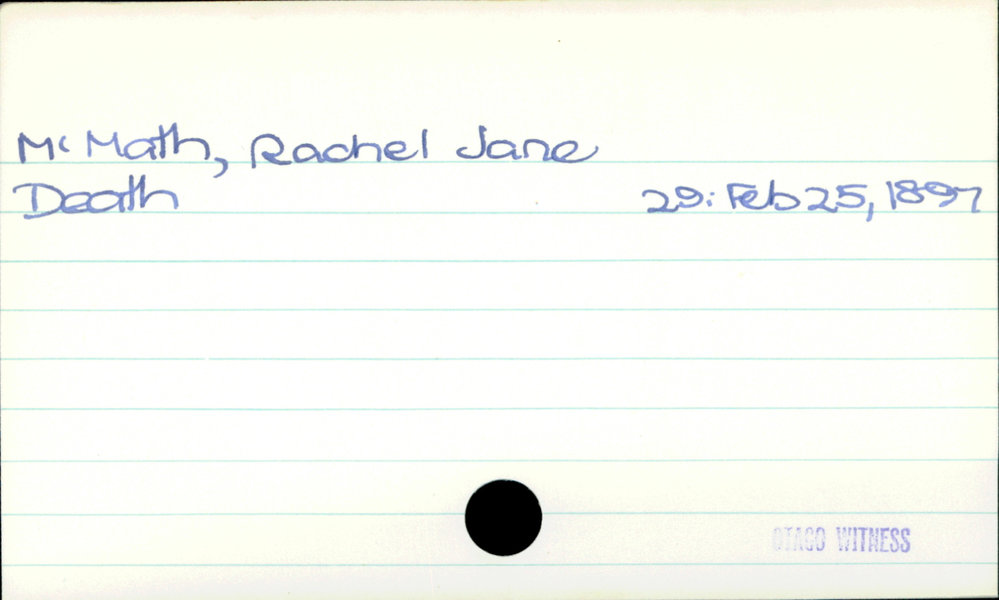 McMath, Rachel Jane
Death 29: Feb 25, 1897
OTAGO WITNESS